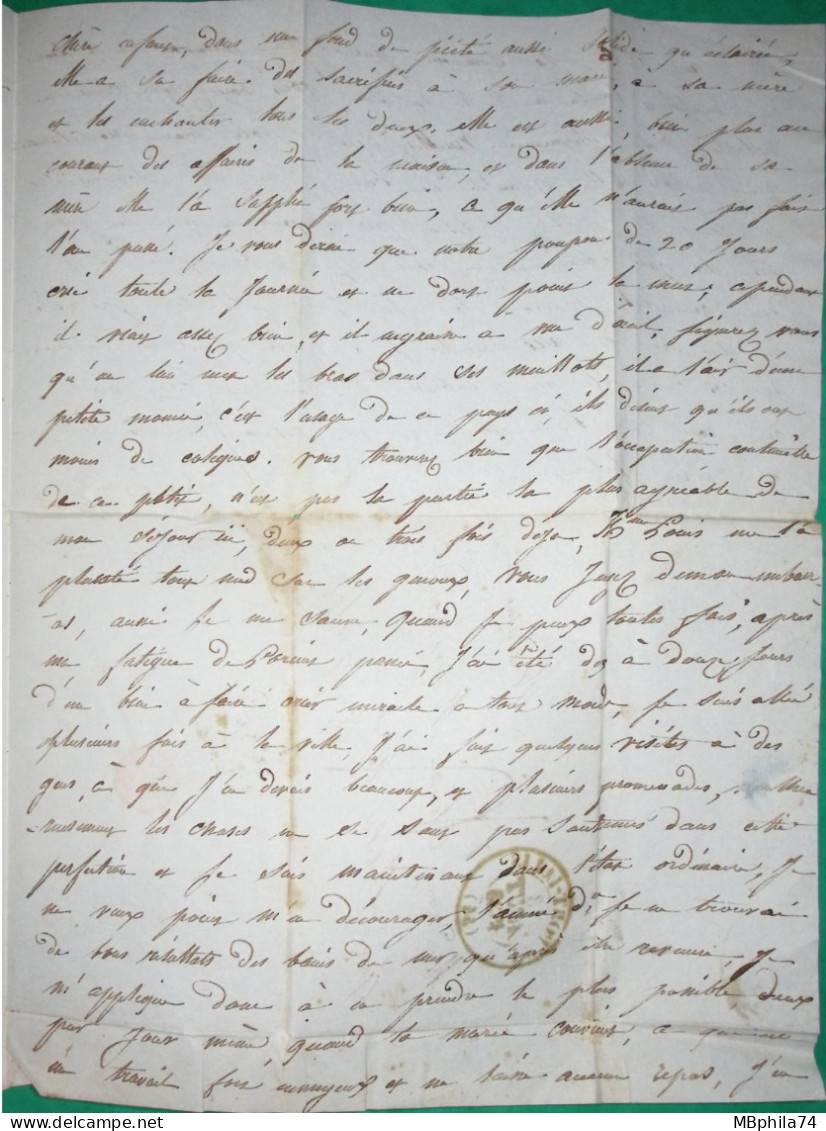 chère enfance, dans un fond de piété aussi solide qu'éclairée,
elle a su faire des sacrifices à son mari, à sa mère
et les enchanter tous les deux. elle est aussi, bien plus au
courant des affaires de la maison, et dans l'absence de sa
mère elle l'a supplée fort bien, ce qu'elle n'aurait pas fait
l'an passé. Je vous dirai que notre poupon de 20 Jours
crie toute la Journée et ne dort point la nuit, cependant
il vient assez bien, et il engraisse à vue d'œil, figurez vous
qu'on lui met les bras dans ses maillots, il a l'air d'une
petite momie, c'est l'usage de ce pays ci, ils disent qu'ils ont
moins de coliques. vous trouverez bien que l'occupation continuelle
de ce petit, n'est pas la partie la plus agréable de
mon séjour ici, deux ou trois fois deja, Louis me l'a
planté tout nud sur les genoux, vous Jugez d'mon embar-
as, aussi Je me sauve, quand Je peux toutes fois, après
ma fatigue de passé, J'ai été dix à douze Jours
d'un bien à faire crier miracle a tout mond, Je suis allé
plusieurs fois à la ville, J'ai fait quelques visites à des
gens, à qui J'en devais beaucoup, et plusieurs promenades,
les choses ne se sont pas soutenues dans cette
perfection et Je suis maintenant dans l'état ordinaire, Je
ne veux point m'en décourager, Je ne trouvai
de bons résultats des bains de mer qu'après en revenir Je
m'applique donc à en prendre le plus possible deux
par Jour même quand la marée convient, ce
un travail fort ennuyeux et ne laisse aucun repos, J'en
MBphila74